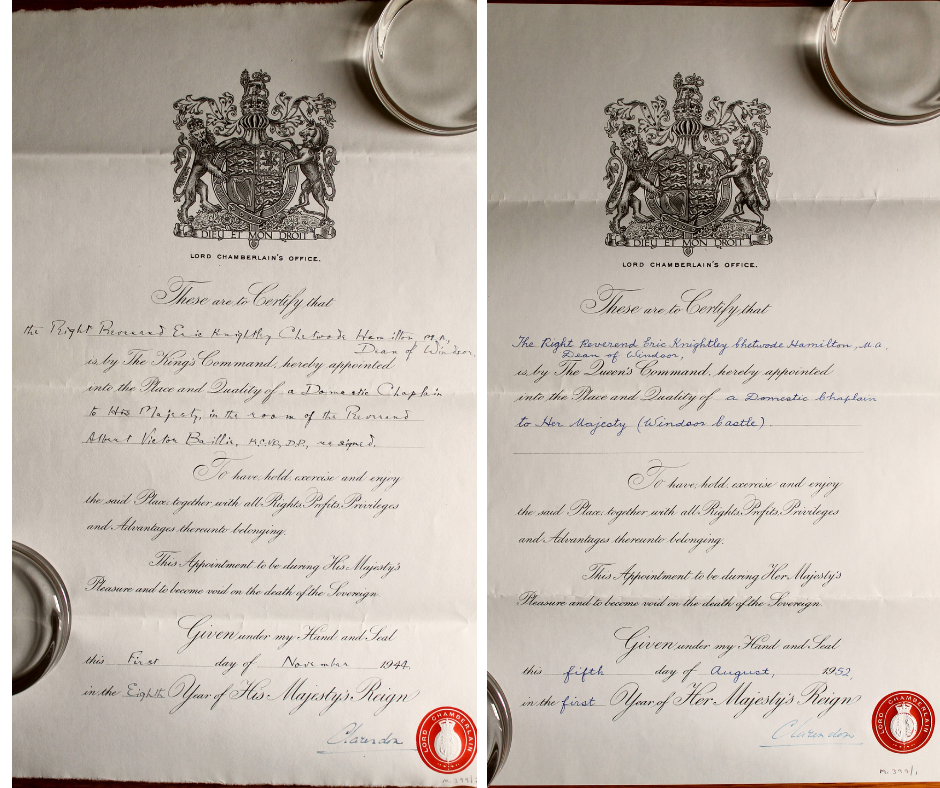 DIEU ET MON DROIT
LORD CHAMBERLAIN'S OFFICE.
These are to Certify that
the Right Reverend Eric Knightley Chetwode Hamilton, M.A,
Dean of Windsor,
is by The King's Command, hereby appointed
into the Place and Quality of a Domestic Chaplain
to His Majesty, in the room of the Reverend
Albert Victor Baillie, K.C.V.O, D.D., resigned.
To have, hold, exercise and enjoy
the said Place, together with all Rights, Profits, Privileges
and Advantages thereunto belonging.
This Appointment to be during His Majesty's
Pleasure and to become void on the death of the Sovereign
Given under my Hand and Seal
this First day of November 1944,
in the Eighth Year of His Majesty's Reign
Clarendon
LORD CHAMBERLAIN
DIEU ET MON DROIT
LORD CHAMBERLAIN'S OFFICE.
These are to Certify that
The Right Reverend Eric Knightley Chetwode Hamilton, M.A.
Dean of Windsor,
is by The Queen's Command, hereby appointed
into the Place and Quality of a Domestic Chaplain
to Her Majesty (Windsor Castle).
To have, hold, exercise and enjoy
the said Place, together with all Rights, Profits, Privileges
and Advantages thereunto belonging.
This Appointment to be during Her Majesty's
Pleasure and to become void on the death of the Sovereign.
Given under my Hand and Seal
this fifth day of August, 1952,
in the first Year of Her Majesty's Reign
Clarendon
LORD CHAMBERLAIN
M. 399/1